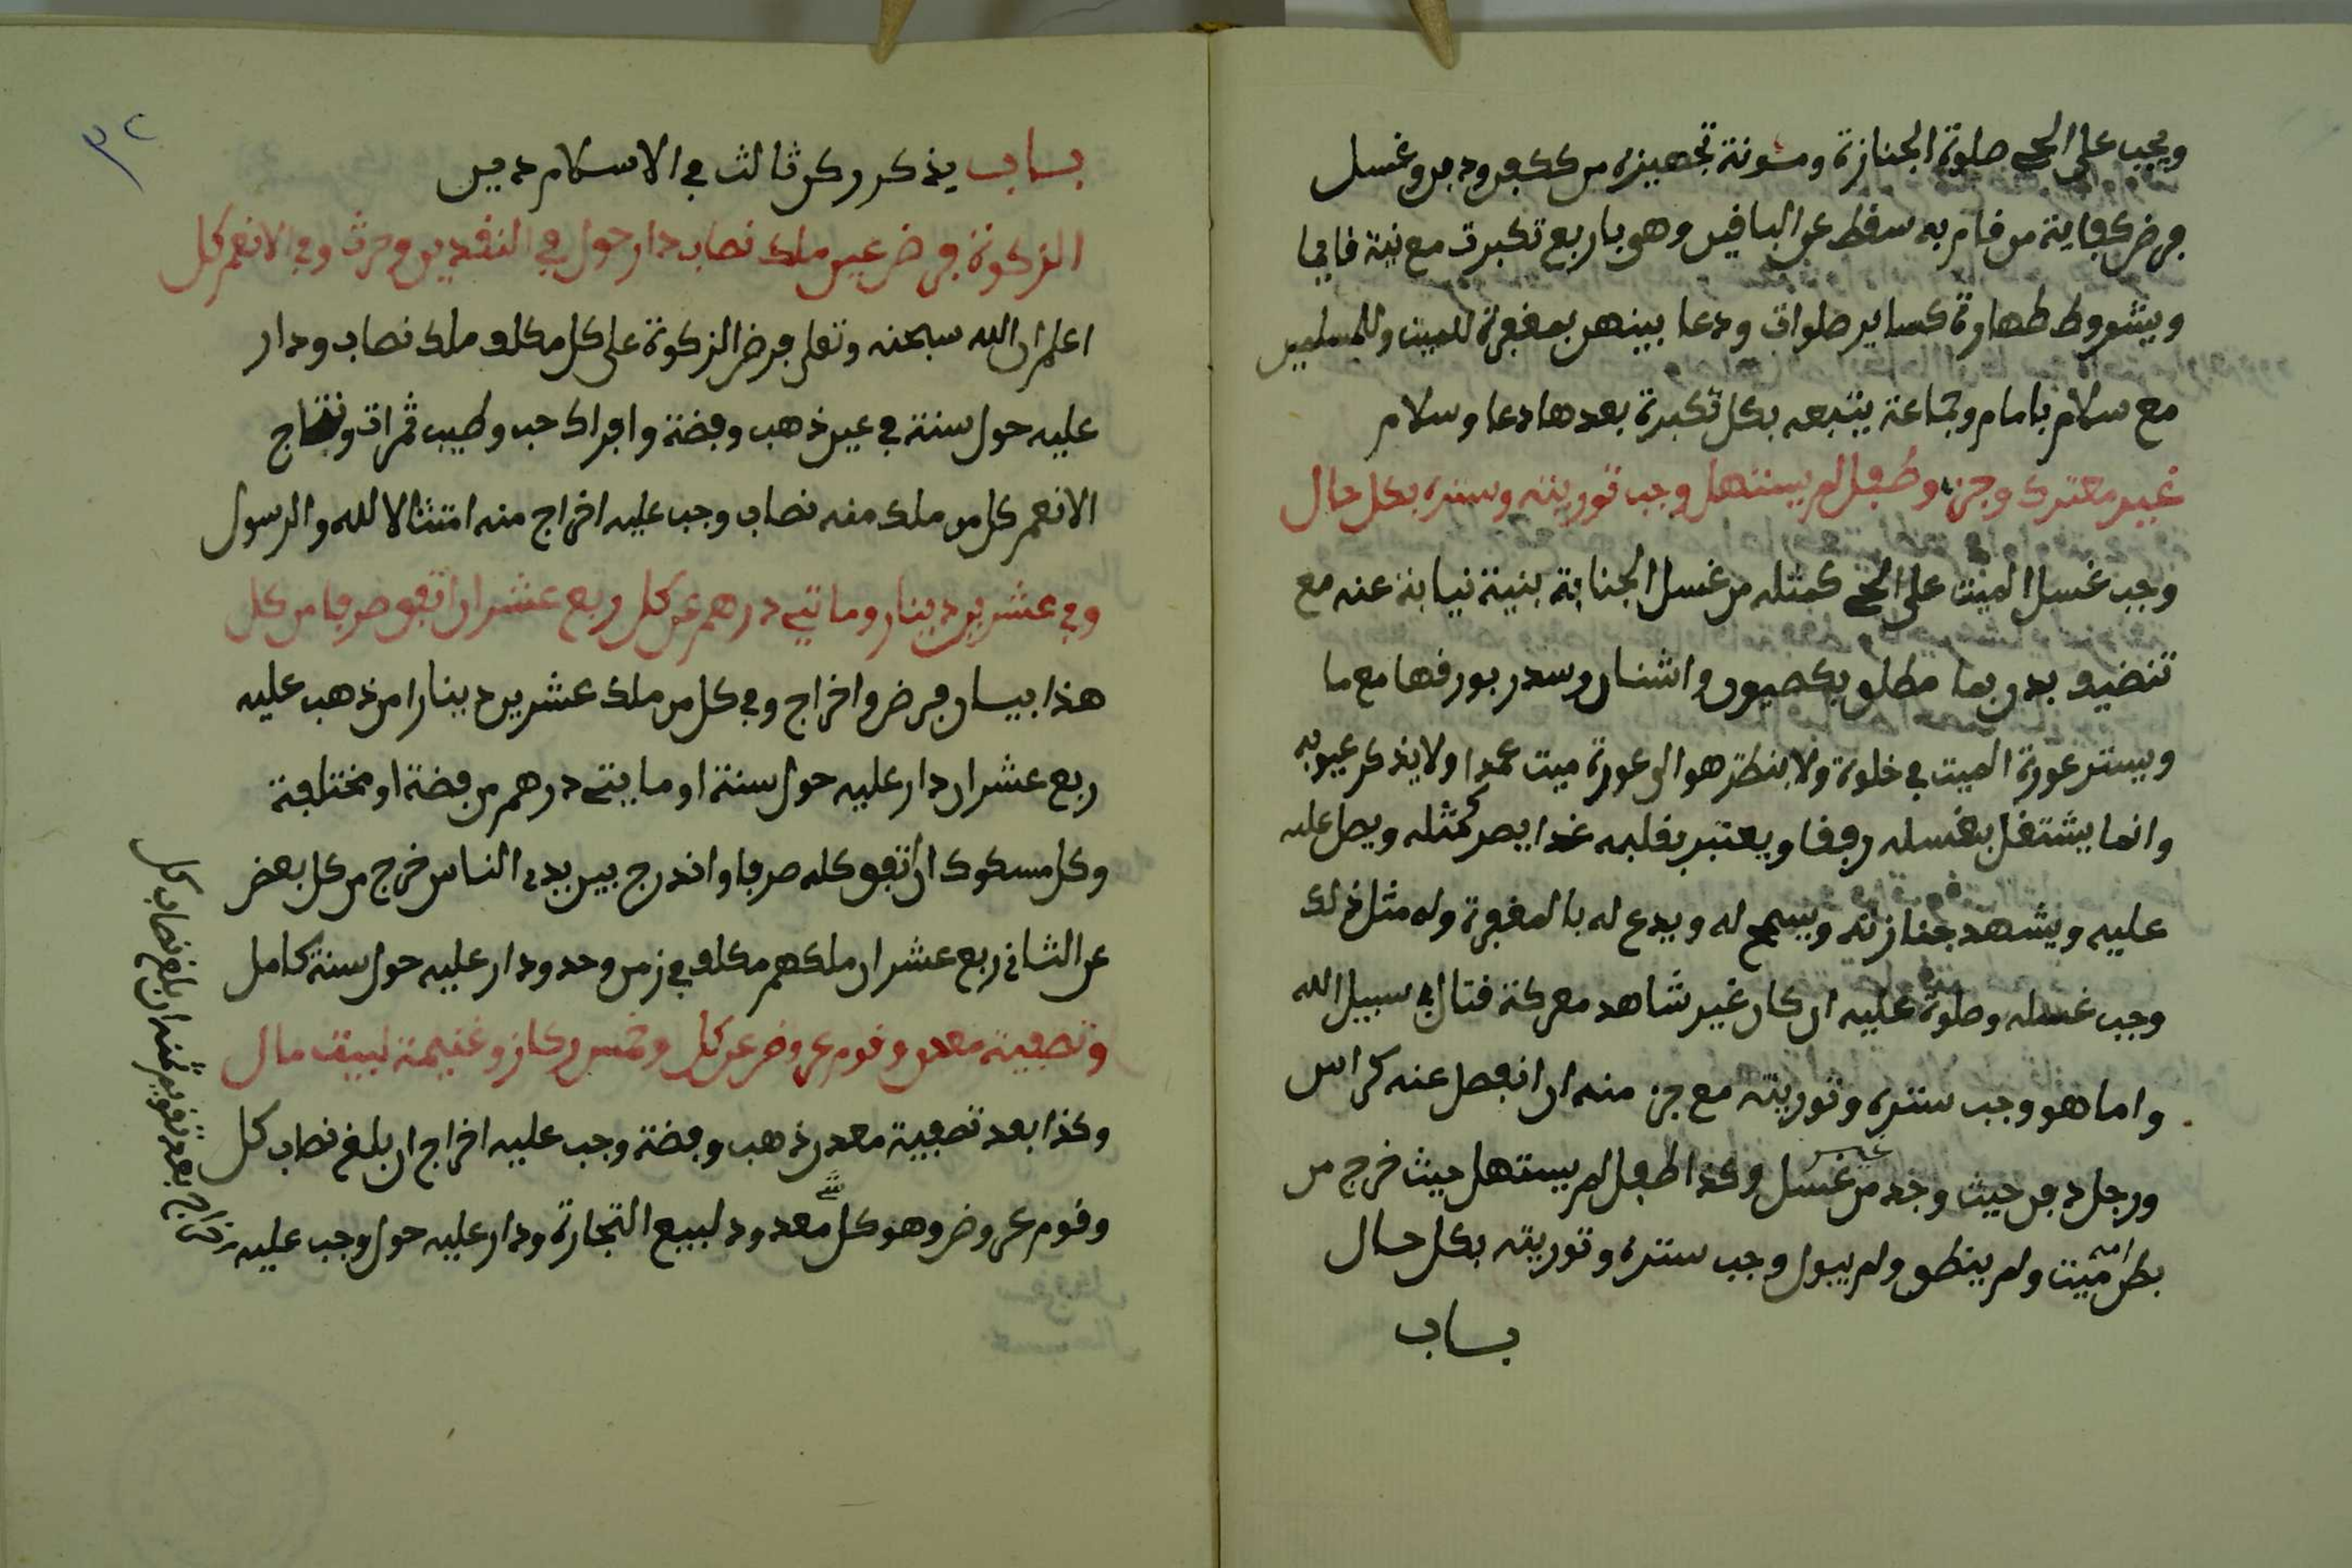 ويجب على الحي صلوة الجنازة ومئونة تجهيزه من ككفن ودفن وغسل
فرض كفاية من قام به سقط عن الباقين وهو باربع تكبرت مع نية قايما
وبشروط طهارة كساير صلوات ودعا بينهن بمغفرة للميت وللمسلمين
مع سلام بامام وجماعة يتبعه بكل تكبرة بعدها دعا وسلام
غير معترك وجزء وطفل لم يستهل وجب توريته وستره بكل حال
وجب غسل الميت على الحي كمثله من غسل الجنابة بنية نيابة عنه مع
تنضيف بدن بما مطلق بكصبون واشنان وسدر بورقها مع ما
ويستر عورة الميت في خلوة ولا ينطر هو الى عورة ميت عمدا ولا يذكر عيوبه
وانما يشتغل بغسله رفقا ويعتبر بقلبه غدا يصر كمثله ويصل عليه
عليه ويشهد جنازته ويسمح له ويدع له بالمغفرة وله مثل ذلك
وجب غسله وصلوة عليه ان كان غير شاهد معركة قتال في سبيل الله
واما هو وجب ستره وتوريته مع جزء منه ان انفصل عنه كراس
ورجل دفن حيث وجد من غير غسل وكذا طفل لم يستهل حيث خرج من
بطن امه ميت ولم ينطق ولم يبول وجب ستره وتوريته بكل حال
باب
٣٢
باب يذكر ركن ثالث في الاسلام دين
الزكوة فرض عين ملك نصاب دار حول في النقدين وحرث وفي الانعم كل
اعلم ان الله سبحنه وتعلى فرض الزكوة على كل مكلف ملك نصاب ودار
عليه حول سنة في عين ذهب وفضة وافراك حب وطيب ثمرات ونتاج
الانعم كل من ملك منه نصاب وجب عليه اخراج منه امتثالا لله والرسول
وفي عشرين دينار وماتي درهم عن كل ربع عشر ان اتفق صرفا من كل
هذا بيان فرض واخراج وفي كل من ملك عشرين دينارا من ذهب عليه
ربع عشر ان دار عليه حول سنة او مايتي درهم من فضة او مختلفة
وكل مسكوك ان اتفق كله صرفا واندرج بين يدى الناس خرج من كل بعض
عن الثاني ربع عشر ان ملكهم مكلف في زمن وحد ودار عليه حول سنة كامل
وتصفية معدن وقوم عروض عن كل وخمس ركاز وغنيمة لبيت مال
وكذا بعد تصفية معدن ذهب وفضة وجب عليه اخراج ان بلغ نصاب كل
وقوم عروض وهو كل شئ معدود لبيع التجارة ودار عليه حول وجب عليه
اخراج بعد تقويم ثمنه ان بلغ نصاب كل